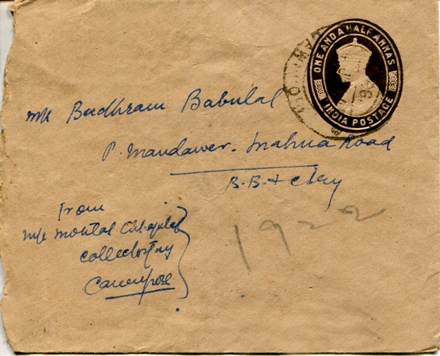 ONE AND A HALF ANNAS
INDIA POSTAGE
M/s Budhram Babulal
P. Mandawer. Mahua Road
B.B.&
From
M/s
Collectorgunj
Cawnpore
1922